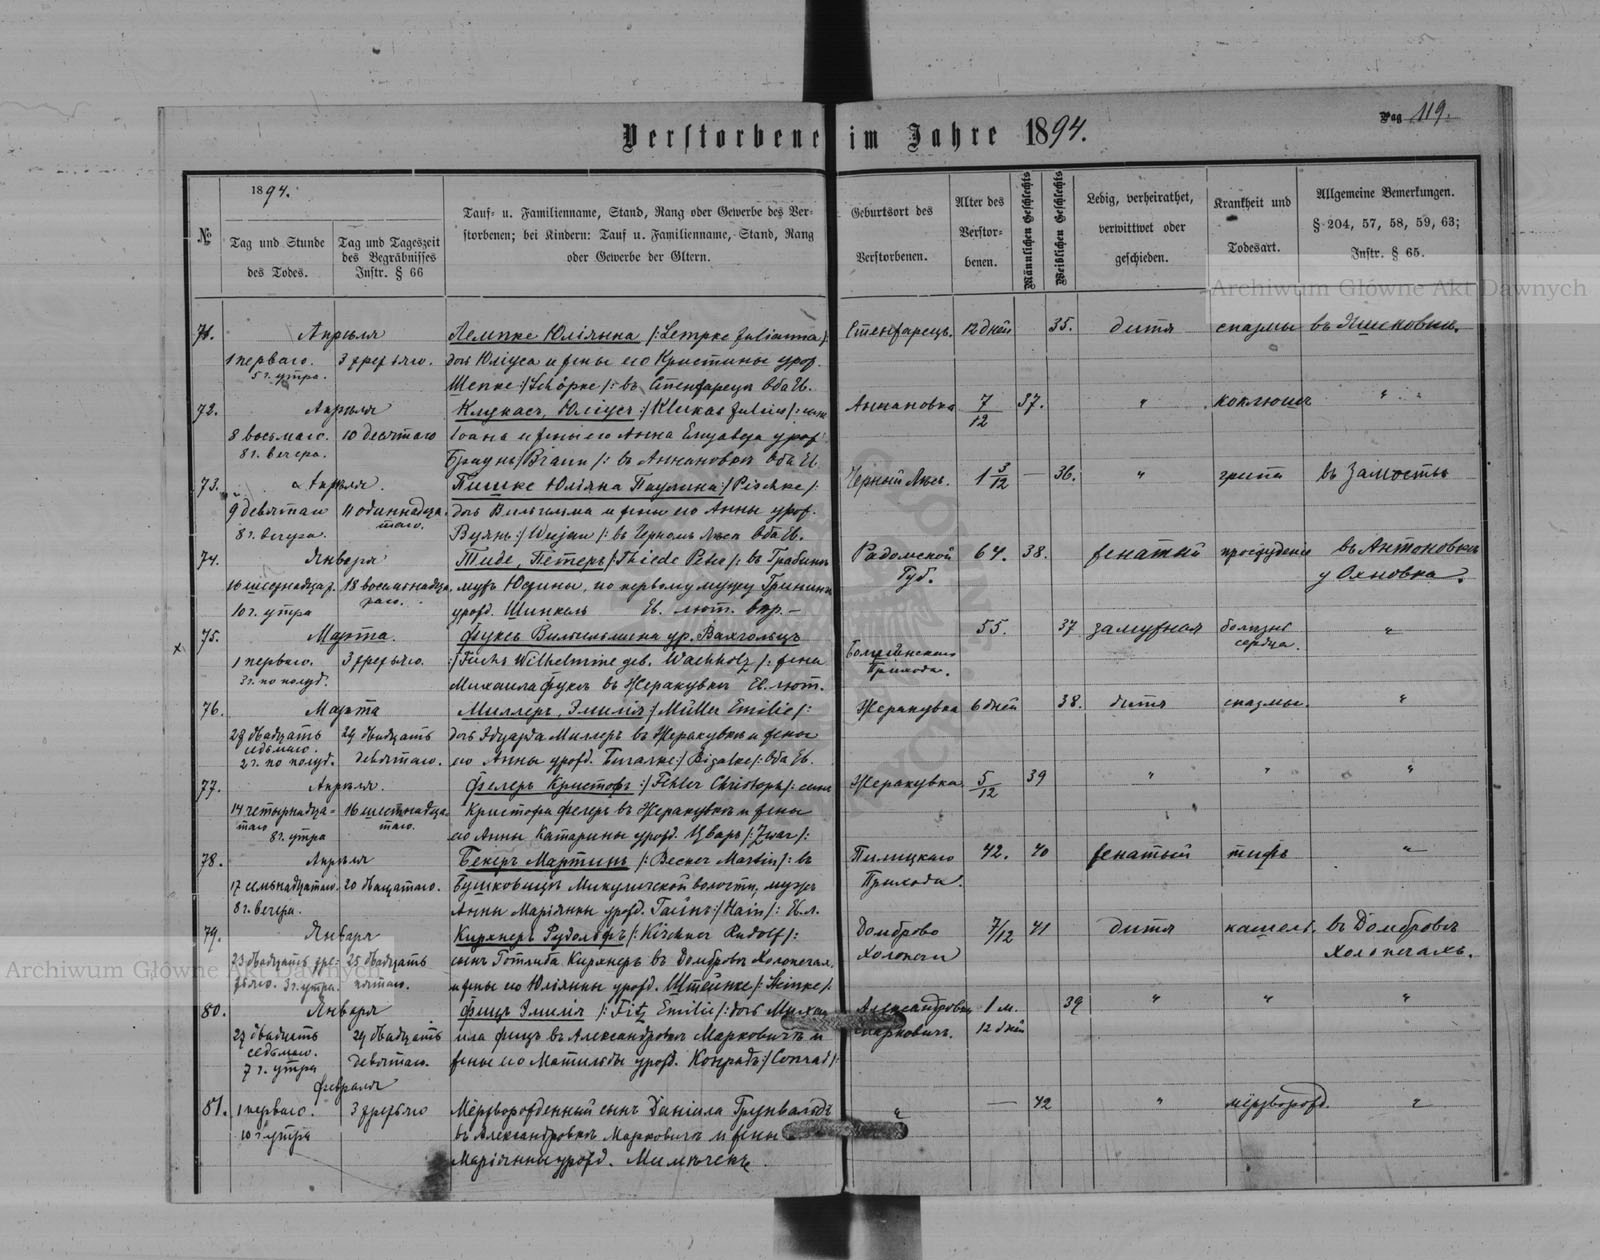 Pag 119.
Verstorbene im Jahre 1894.
№
1894.
Tag und Stunde
des Todes.
Tag und Tageszeit
des Begräbnisses
Instr. § 66
Tauf- u. Familienname, Stand, Rang oder Gewerbe des Ver-
storbenen; bei Kindern: Tauf u. Familienname, Stand, Rang
oder Gewerbe der Eltern.
Geburtsort des
Verstorbenen.
Alter des
Verstor-
benen.
Männlichen Geschlechts
Weiblichen Geschlechts
Ledig, verheirathet,
verwittwet oder
geschieden.
Krankheit und
Todesart.
Allgemeine Bemerkungen.
§ 204, 57, 58, 59, 63;
Instr. § 65.
Archiwum Główne Akt Dawnych
71. Апрѣля Лемпке Юліянна /: Lempke Julianna :/ 12 дней 35. дитя спазмы
1 перваго. 3 третьяго. дочь Юліуса и жены его Кристины урож.
5 ч. утра. Шепке :/ Schöpke /: въ Оба Ев.
72. Апрѣля Клукасъ, Юліусъ :/ Klukas Julius /: сынъ Аннановка 7/12 37. " коклюшъ "
8 восьмаго. 10 десятаго Іоана и жены его Анна Елизавета урож.
8 ч. вечера. Браунъ / Braun /: въ Аннановкѣ Оба Ев.
73. Апрѣля. Пишке Юліяна Паулина :/ Pischke /: Черный Лѣсъ. 1 3/12 — 36. " грипа въ Замостьѣ
9 девятаго 11 одиннадца- дочь Вильгельма и жены его Анны урож.
таго.
8 ч. вечера. Вуянъ :/ Wujan /: въ Черномъ Лѣсѣ Оба Ев.
74. Января Тиде, Петеръ / Thiede Peter /: въ Грабинѣ Радомской 64. 38. женатый въ Антоновкѣ
Губ.
мужъ по первому мужу
10 ч. утра урожд. Шинкель Ев. лют.
x 75. Марта. Фуксъ Вильгельмина ур. Вахгольцъ 55. 37 замужняя болѣзнь "
сердца.
1 перваго. 3 третьяго. :/ Fuchs Wilhelmine geb. Wachholz /: жена Прихода.
3 ч. по полуд. Михаила Фукса въ Жеракувкѣ Ев. лют.
76. Марта Миллеръ, Эмилія :/ Müller Emilie /: Жеракувка 6 дней 38. дитя спазмы. "
27 двадцать 29 двадцать дочь Эдуарда Миллеръ въ Жеракувкѣ и жены
седьмаго.
2 ч. по полуд. девятаго. его Анны урожд. Бигалке :/ Bigalke /: Оба Ев.
77. Апрѣля. Фелеръ Кристофъ :/ Fehler Christoph /: сынъ Жеракувка 5/12 39 " " "
14 четырнадца- 16 шестнадца- Кристофа Фелеръ въ Жеракувкѣ и жены
таго таго.
8 ч. утра его Анны Катарины урожд. Цваръ /: Zwar /:
78. Апрѣля Бекеръ Мартинъ /: Becker Martin /: въ Пилицкаго 42. 40 женатый тифъ "
17 семьнадцатаго. 20 двадцатаго. Бушковицѣ Микуличской волости, мужъ Прихода.
8 ч. вечера. Анны Маріянны урожд. Гайнъ :/ Hain /: Ев. л.
79. Января Кирхнеръ Рудольфъ /: Kirchner Rudolf /: Домброво 7/12 41 дитя кашель. въ Домбровѣ
Холопечи Холопечахъ.
23 двадцать тре- 25 двадцать сынъ Готлиба Кирхнеръ въ Домбровѣ Холопечахъ
тьяго. 3 ч. утра. пятаго. и жены его Юліянны урожд. Штейнке /: Steinke /:
Archiwum Główne Akt Dawnych
80. Января Фицъ Эмилія /: Fitz Emilie /: дочь Миха- Александровка 1 м. 39 " " "
27 двадцать 29 двадцать ила Фицъ въ Александровкѣ Марковичъ и Марковичъ. 12 дней
седьмаго.
7 ч. утра девятаго. жены его Матильды урожд. Конрадъ :/ Conrad /:
Февраля
81. 1 перваго. 3 третьяго Мёртворожденный сынъ Даніила Грунвальдъ " — 42 " мёртворожд. "
10 ч. утра въ Александровкѣ Марковичъ и жены
Маріянны урожд.